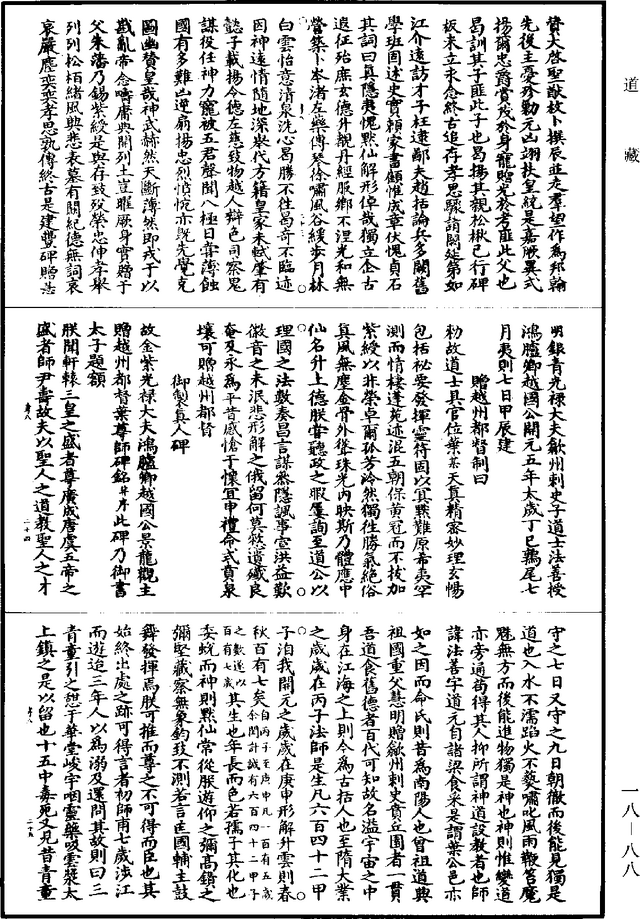 道藏
賛大啓聖猷故卜撰辰並走羣望作爲邦翰
先後主憂殄勦元凶翊扶皇統是嘉厥異式
揚爾忠爵賞茂於身寵贈光於考匪此父也
曷訓其子匪此子也曷揚其親松楸已行碑
板未立永念終古追存孝思驟請闕廷第如
江介遠訪才子枉逮鄙夫趙括論兵多闕舊
學班固述史實賴家書顧惟成章伏愧貞石
其詞曰真隱夷愧黙仙解形倬哉獨立企古
遐征殆庶玄德升聞丹經服鄉不涅光和無
營築卜岑渚左藥傳琴徐嘯風谷緩步月林
白雲怡意清泉洗心曷勝不往曷奇不臨迹
因神遠情隨地深嶽代方籍皇家未軾肇有
懿子載揚令德左慈致物越人辯色司察冕
謀役任神力寵被五君聲聞八極日嘗薄蝕
國有多難凶逆扇揚忠烈憤惋亦既先覺克
圖幽賛皇哉神武赫然天斷薄然即戎于以
戡亂帝念疇庸典開列土豈暱厥身實贈于
父朱藩乃錫紫綬是與存致殁榮忠伸孝舉
列列松栢緒風興悲表墓有闕紀德無詞哀
哀嚴應奕奕孝思孰傳終古是建豐碑贈告
明銀青光祿大夫歙州刺史子道士法善授
鴻臚卿越國公開元五年太歲丁巳鶉尾七
月夷則七日甲辰建
贈越州都督制曰
勑故道士具官位葉某天真精密妙理玄暢
包括祕要發揮靈符固以冥黙難原希夷罕
測而情棲蓬菀迹混五朝保黃冠而不拔加
紫綬以非榮卓爾孤芳泠然獨往勝氣絶俗
真風無塵金骨外聳珠光内映斯乃體應中
仙名升上德朕嘗聽政之暇屢詢至道公以
理國之法數奏昌言謀叅隱諷事宣洪益歎
徽音之未泯悲形解之俄留何莫憗遺殲良
奄及永爲平昔感愴于懷宜申禮命式賁泉
壤可贈越州都督
御製真人碑
故金紫光祿大夫鴻臚卿越國公景龍觀主
贈越州都督葉尊師碑銘并序此碑乃御書
太子題額
朕聞軒轅三皇之盛者尊廣成唐虞五帝之
盛者師尹壽故夫以聖人之道教聖人之才
守之七日又守之九日朝徹而後能見獨是
道也入水不濡蹈火不爇嘯叱風雨鞭笞魔
魅無方而後能造物獨是神也神則惟變道
亦旁通苟得其人抑所謂神道設教者也師
諱法善字道元自諸梁食采是謂葉公邑亦
如之因而命氏則昔爲南陽人也曾祖道興
祖國重父慧明贈歙州刺史賁丘園者一貫
吾道食舊德者百代可知故名溢宇宙之中
身在江海之上則今爲古括人也至隋大業
之歲歲在丙子法師是生凡六百四十二甲
子洎我開元之歲歲在庚申形解升雲則春
秋百有七矣自丙子至庚申凡一百有五歲今閏計誠有六百四十二甲子之數遂以百有七歲其生也年長而色若孺子其化也
委蜕而神則黙仙常從朕遊仰之彌高鑽之
彌堅藏察無象鈎致不測若言匡國輔主鼓
舞發揮焉朕可推而尊之不可得而臣也其
始終出處之跡可得言者初師甫七歲涉江
而遊迨三年人以爲溺及還問其故則曰三
青童引之憩于華堂峻宇咽靈藥吸雲漿太
上鎮之是以留也十五中毒死又見昔青童
一八—八八